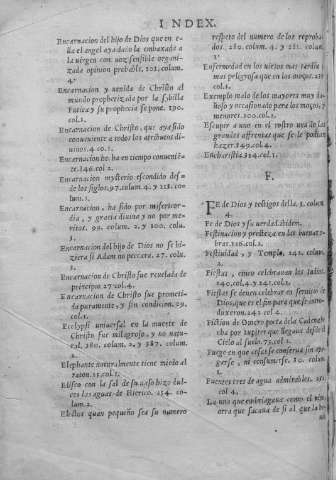 INDEX.
Encarnacion del hijo de Dios que en e-
lla el angel ayadado la embaxada a
la virgen con voz sensible organi-
zada opinion probable. 101. colum.
4.
Encarnacion y venida de Christo al
mundo prophetizada por la sybilla
y su prophecia se pone. 190.
col.1.
Encarnacion de Christo, que aya sido
conueniente a todos los atributos di-
uinos. 4.co.1.
Encarnacion no ha en tiempo conueni-
te. 146.col.2.
Encarnacion mysterio escondido des-
de los siglos. 97. colum. 4. y 118. co-
lum.
Encarnacion, ha sido por misericor-
dia, y gracia diuina y no por me-
ritos. 99. colum. 2. y 100. colum.
3.
Encarnacion del hijo de Dios no se hi-
ziera si Adam no peccara. 27. colum.
3.
Encarnacion de Christo fue reuelada de
principio. 27.col.4.
Encarnacion de Christo fue prometi-
da puramente, y sin condicion. 29.
col.1.
Eclypsi uniuersal en la muerte de
Christo fue milagroso, y no natu-
ral. 380. colum. 2. y 387. colum.
2.
Elephante naturalmente tiene miedo al
raton. 35.col.1.
Eliseo con la sal de su vaso hizo dul-
ces las aguas de Hierico. 254. co-
lum.2.
Electos quan pequeño sea su numero
respeto del numero de los reproba-
dos. 280. colum. 4. y 281. colum.
1.
Enfermedad en los viejos mas tardia
mas peligrosa que en los moços. 231.
col.1.
Exemplo malo de los mayores muy da-
ñoso y occasionado para los moços, y
menores. 300.col.1.
Escupir a uno en el rostro una de las
grandes afrentas que se le podian
hazer. 349.col.4.
Eucharistia 314.col.1.
F.
FE de Dios y testigos della. 5. colum.
4
Fe de Dios y su verdad ibidem.
Festinacion y presteza en las buenas o-
bras. 316.col.1.
Festiuidad, y Templo. 241. colum.
2.
Fiestas, cinco celebrauan los Iudios.
240.col.4.y 241.col.1.
Fiestas se deuen celebrar en seruicio de
Dios, que es el fin para que se intro-
duxeron. 242.col.4
Fiction de Omero poeta de la Cadena
cha por Iupiter que llegaua desde el
Cielo al suelo. 75.col.1.
Fuego en que essas se conserua sin apa-
garse, ni consumirse. 10. colum.
1.
Fuentes tres de agua admirables. 251.
col.4.
La una que embriagaua como el vi-
otra que sacaua de si al que la be-
uia